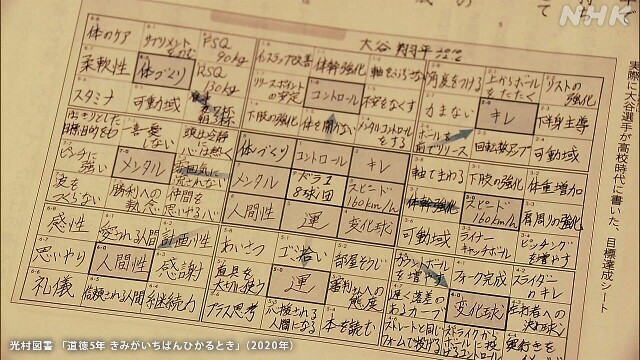 NHK
大谷 翔平
実際に大谷選手が高校時代に書いた、目標達成シート
体のケア サプリメントをのむ FSQ 90kg インステップ改善 体幹強化 軸をぶらさない 角度をつける 上からボールをたたく リストの強化
柔軟性 体づくり RSQ 130kg リリースポイントの安定 コントロール 不安をなくす 力まない キレ 下半身主導
スタミナ 可動域 下肢の強化 体を開かない メンタルコントロールをする ボールを前でリリース 回転数アップ 可動域
はっきりとした目標、目的をもつ 一喜一憂しない 頭は冷静に心は熱く 体づくり コントロール キレ 軸でまわる 下肢の強化 体重増加
ピンチに強い メンタル 雰囲気に流されない メンタル ドラ1 8球団 スピード160km/h 体幹強化 スピード160km/h 肩周りの強化
波をつくらない 勝利への執念 仲間を思いやる心 人間性 運 変化球 可動域 ライナーキャッチボール ピッチングを増やす
感性 愛される人間 計画性 あいさつ ゴミ拾い 部屋そうじ カウントボールを増やす フォーク完成 スライダーのキレ
思いやり 人間性 感謝 道具を大切に使う 運 審判さんへの態度 遅く落差のあるカーブ 変化球 左打者への決め球
礼儀 信頼される人間 継続力 プラス思考 応援される人間になる 本を読む ストレートと同じフォームで投げる ストライクからボールに投げるコントロール 奥行きを
光村図書 「道徳5年 きみがいちばんひかるとき」(2020年)